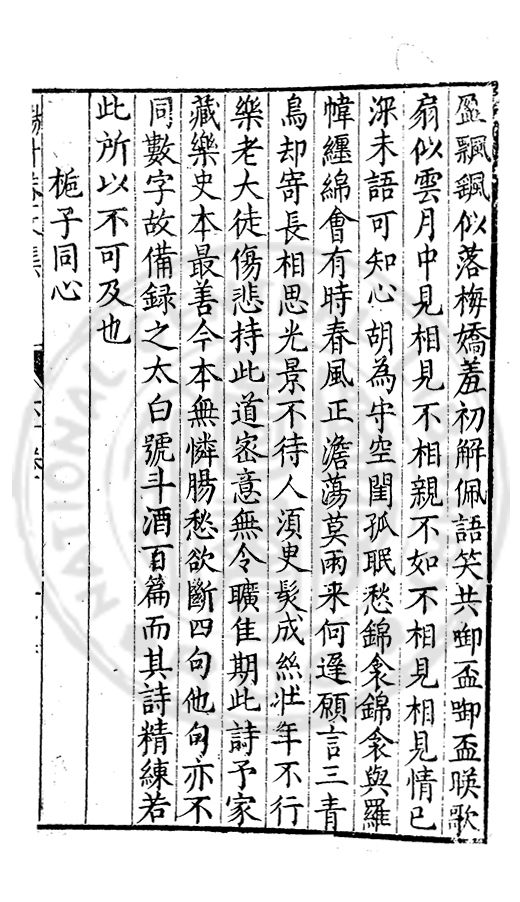 盈飄飖似落梅嬌羞初解佩語笑共啣盃啣盃暎歌
扇似雲月中見相見不相親不如不相見相見情已
深未語可知心胡為守空閨孤眠愁錦衾錦衾與羅
幃纏綿會有時春風正澹蕩莫雨来何遲願言三青
鳥却寄長相思光景不待人湏史髮成絲壯年不行
樂老大徒傷悲持此道密意無令曠佳期此詩予家
藏樂史本最善今本無憐腸愁欲斷四句他句亦不
同數字故備録之太白號斗酒百篇而其詩精練若
此所以不可及也
梔子同心
NATIONAL